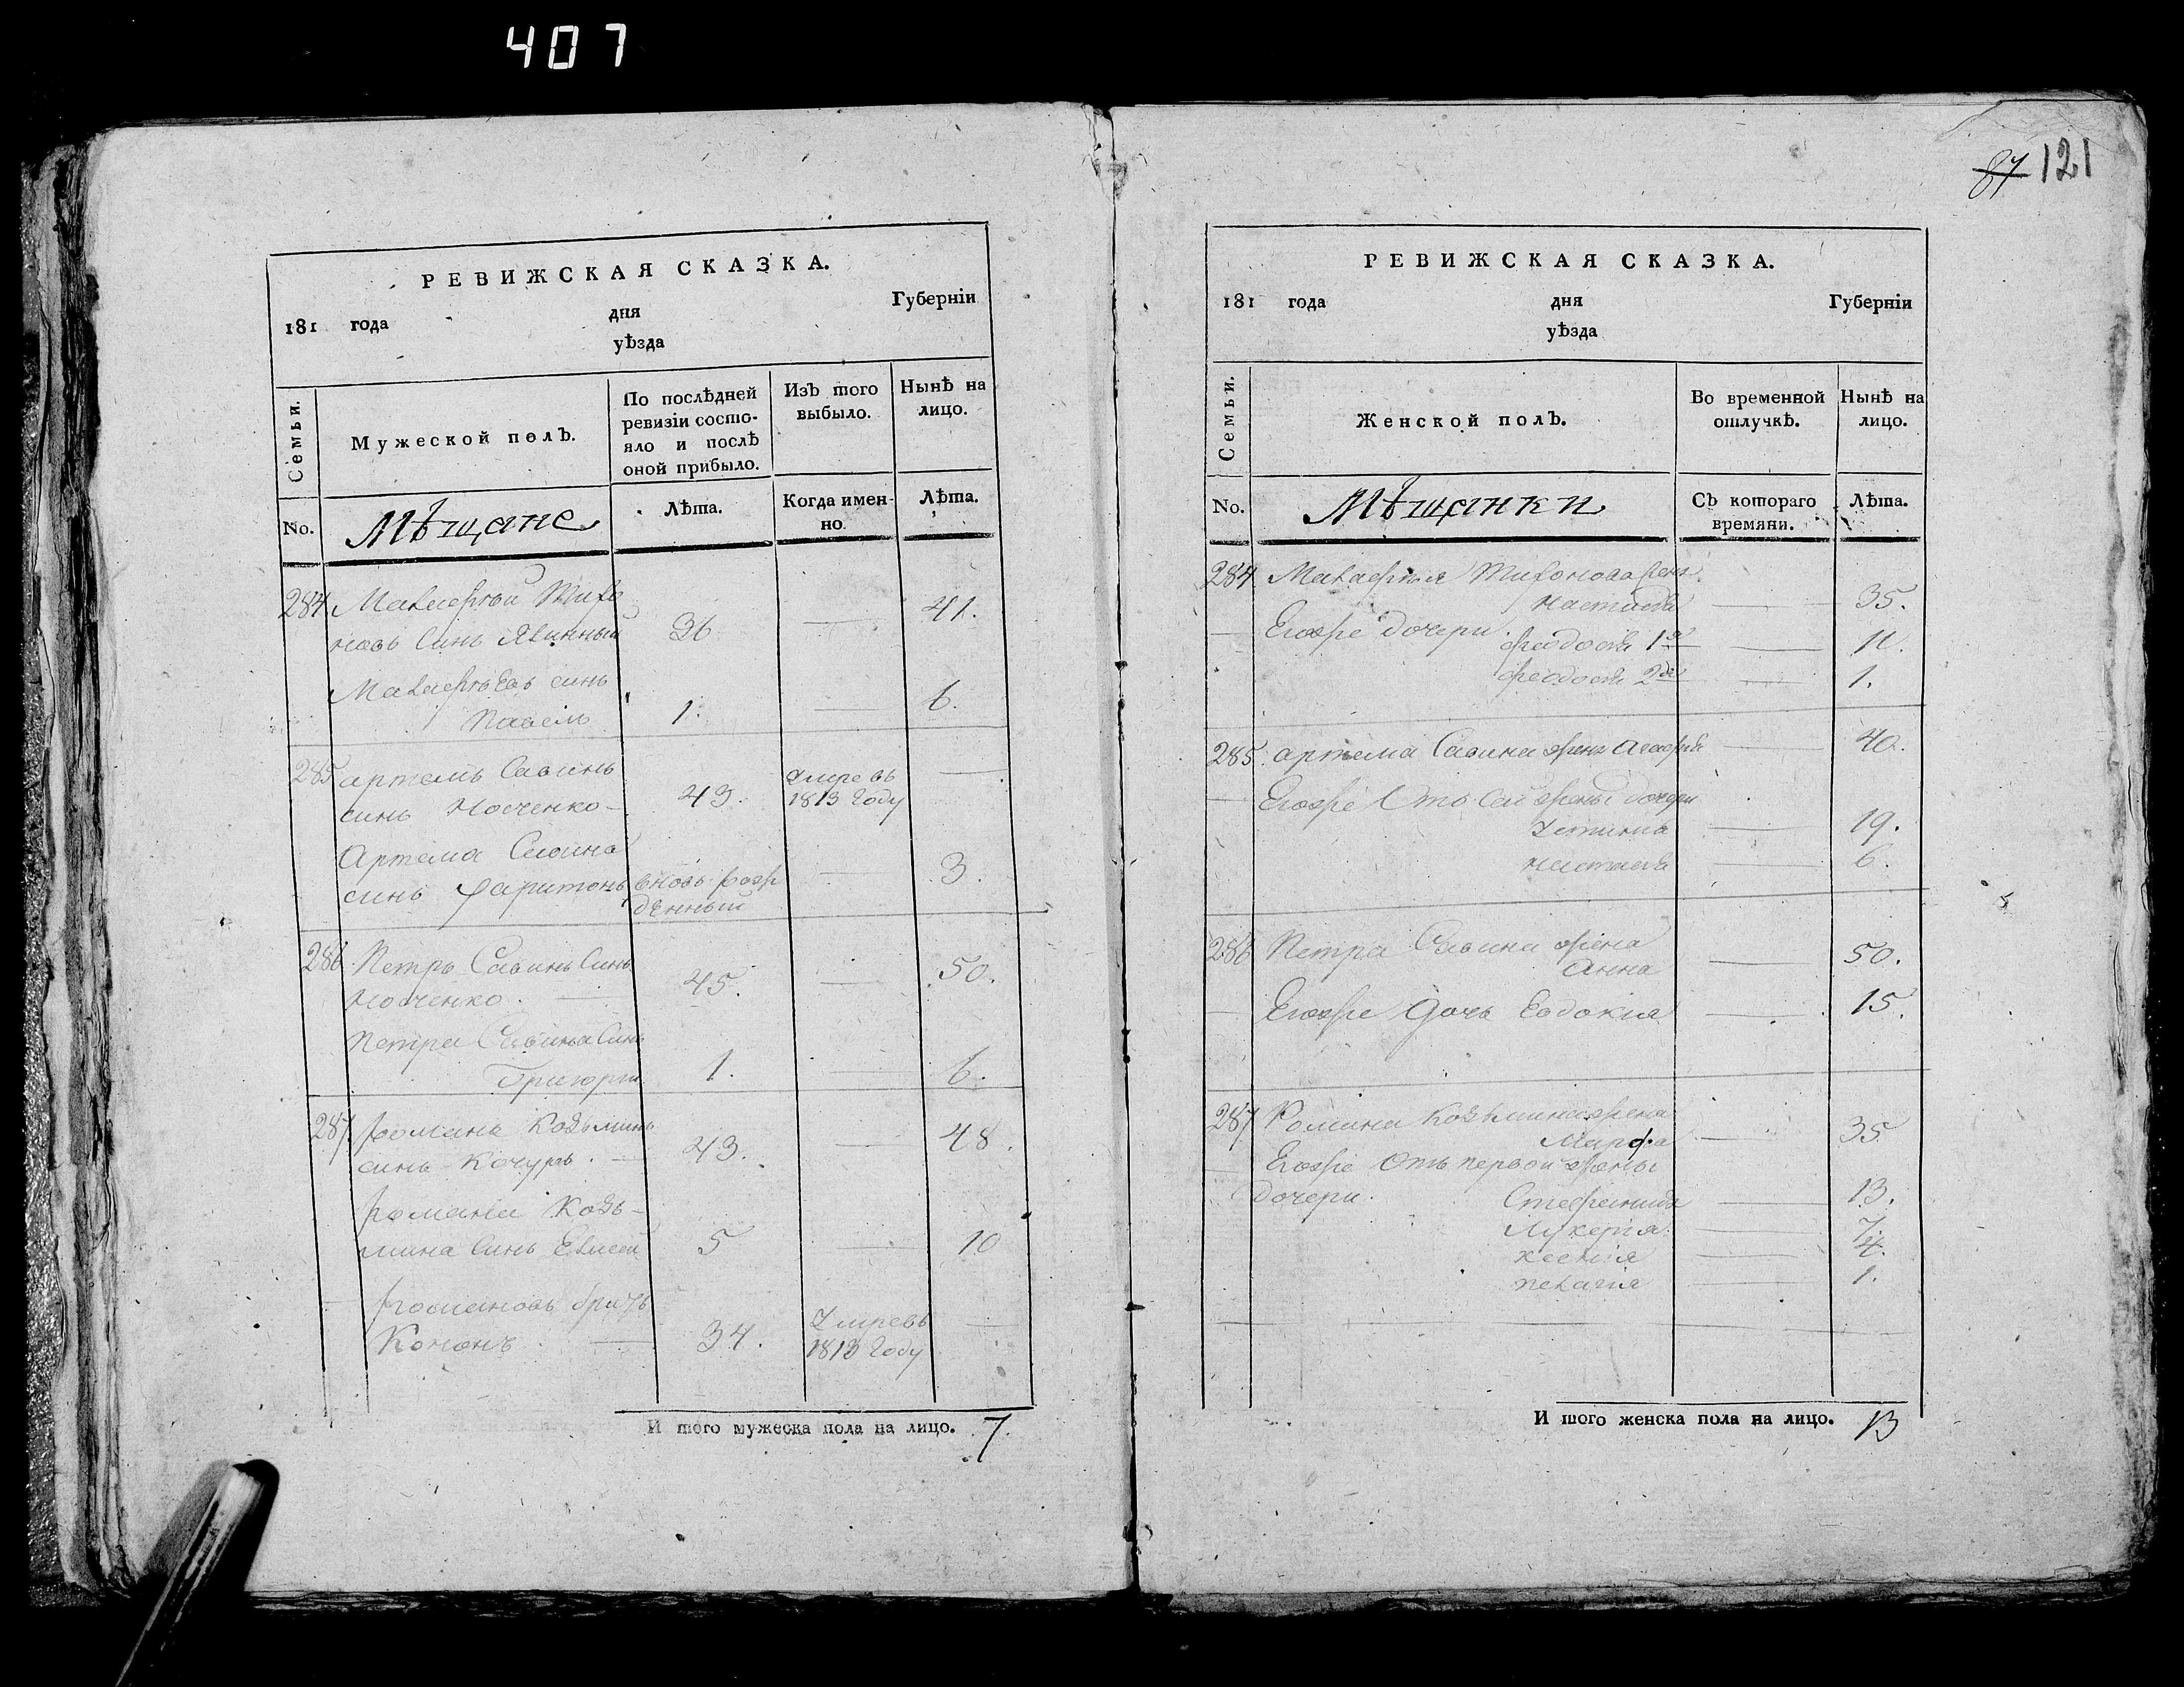 407
87 121
РЕВИЖСКАЯ СКАЗКА.
181 года дня Губерніи
уѣзда
Семьи.
Мужеской полъ.
По послѣдней ревизіи состояло и послѣ оной прибыло.
Изъ того выбыло.
Нынѣ на лицо.
No.
Мѣщане
Лѣта.
Когда именно.
Лѣта.
284 Макарѣй Тихо
новъ Синъ 36 — 41.
Макарьевъ синъ
Павелъ 1. — 6.
285 артемъ Савинъ умре въ —
синъ Носченко — 43. 1813 году
Артема Савина
синъ Харитонъ вновь рож — 3.
денный
286 Петръ Савинъ Синъ
Носченко. — 45. — 50.
Петра Савина Синъ
Григорій 1. — 6.
287 Романъ Козьминъ
синъ Кочуръ. — 43. — 48.
Романа Козь-
мина Синъ Елисей 5 — 10
Романовъ братъ Умре въ —
Кононъ — 34. 1813 году
И того мужеска пола на лицо. 7.
РЕВИЖСКАЯ СКАЗКА.
181 года дня Губерніи
уѣзда
Семьи.
Женской полъ.
Во временной отлучкѣ.
Нынѣ на лицо.
No.
Мѣщанки
Съ котораго времяни.
Лѣта.
284 Тихонова жена
Настасія — 35.
— Егоже дочери. Феодосія 1я — 11.
Феодосія 2я — 1.
285. артема Савина жена Агафія — 40.
— Егоже Отъ Сей жены дочери
Устинія — 19.
Настасія — 6.
286 Петра Савина жена
Анна — 50.
— Егоже Дочь Евдокия — 15.
287 Романа Козьмина жена
Марфа — 35
— Егоже Отъ первой жены
дочери. Стефанида — 13.
Лукерія — 7.
Ксенія — 4.
Пелагія — 1.
И того женска пола на лицо. 13